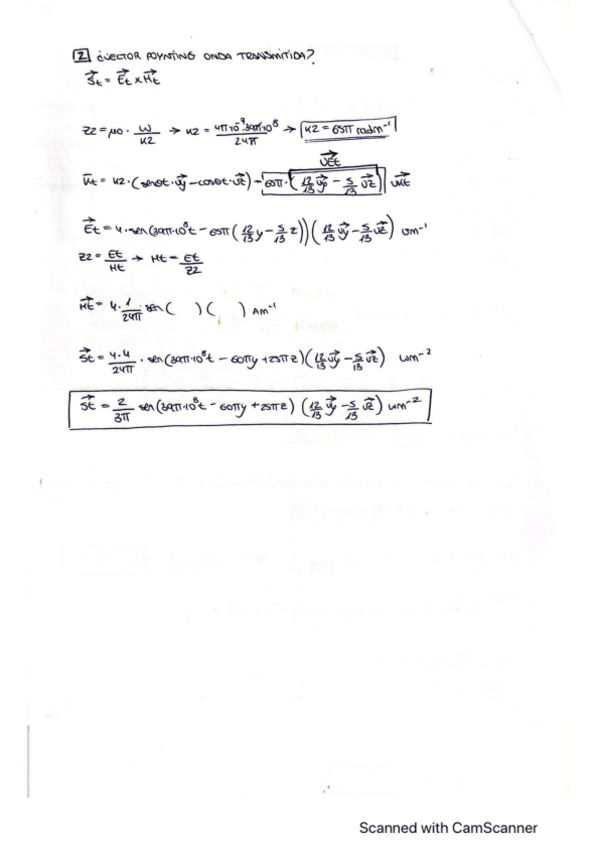 2 ¿VECTOR POYNTING ONDA TRANSMITIDA?
S⃗t = E⃗t x H⃗t
Z2 = μ0 · ω/k2 → k2 = 4π·10⁻⁷·39π·10⁸/24π → k2 = 65π radm⁻¹
u⃗Et
k⃗t = k2 · (senθt · u⃗y - cosθt · u⃗z) = 65π · (12/13 u⃗y - 5/13 u⃗z) u⃗kt
E⃗t = 4 · sen(39π·10⁸t - 65π(12/13 y - 5/13 z)) (12/13 u⃗y - 5/13 u⃗z) Vm⁻¹
Z2 = Et/Ht → Ht = Et/Z2
H⃗t = 4 · 1/24π sen( ) ( ) Am⁻¹
S⃗t = 4·4/24π · sen(39π·10⁸t - 60πy + 25πz) (12/13 u⃗y - 5/13 u⃗z) Wm⁻²
S⃗t = 2/3π sen(39π·10⁸t - 60πy + 25πz) (12/13 u⃗y - 5/13 u⃗z) Wm⁻²
Scanned with CamScanner